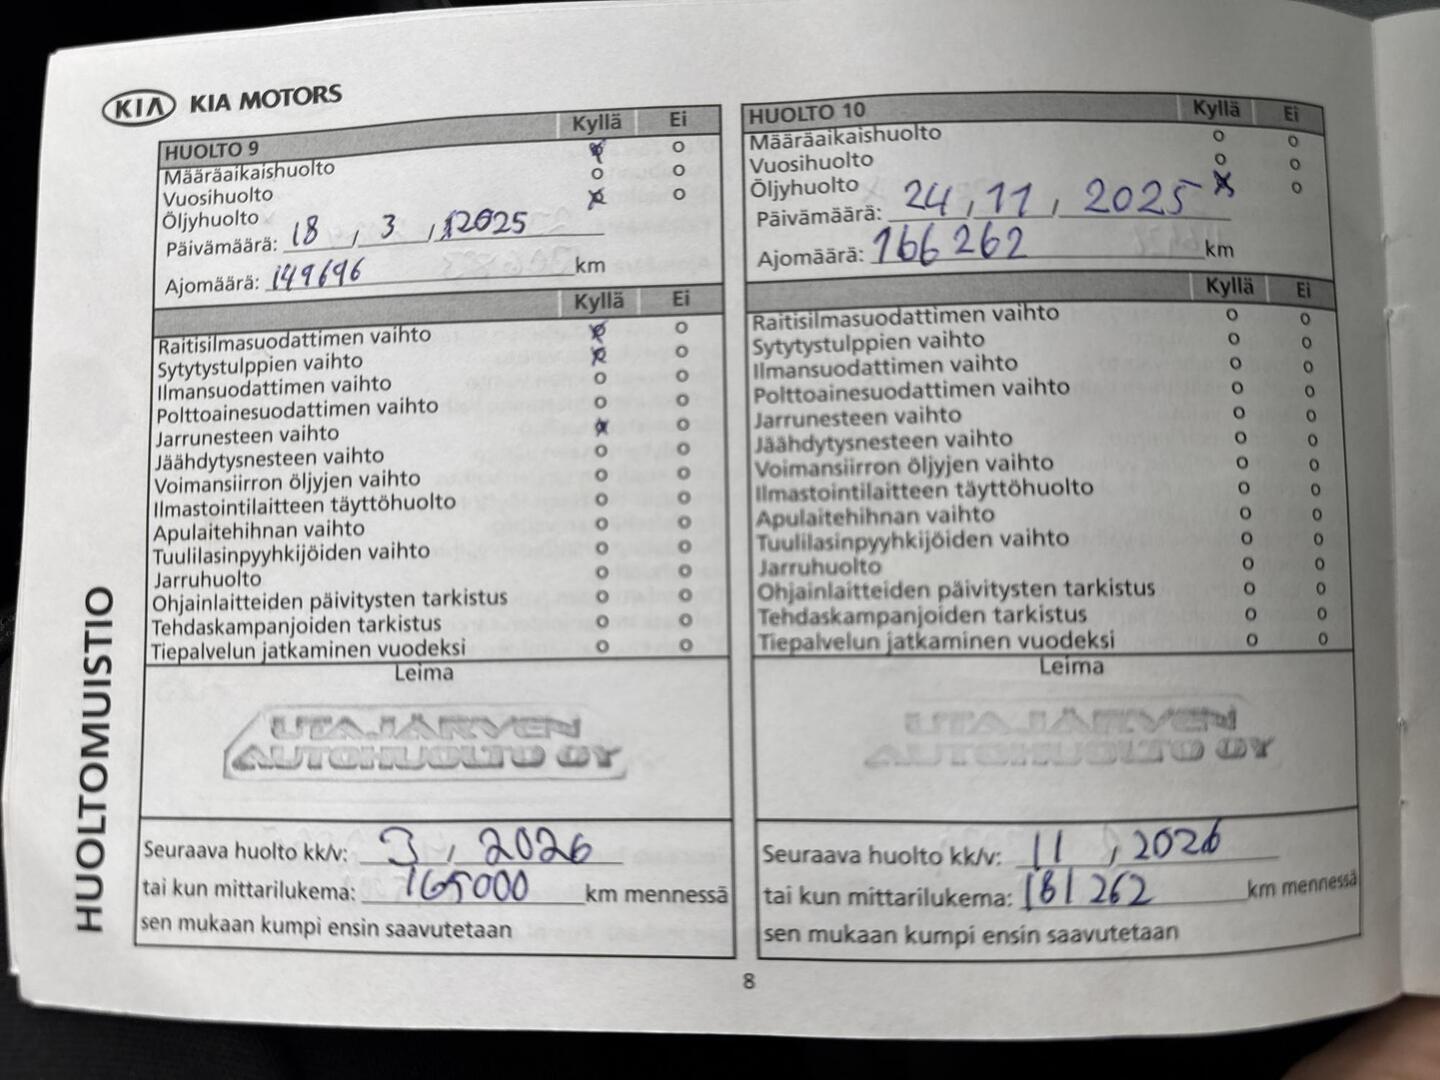 KIA KIA MOTORS
HUOLTO 9 Kyllä Ei
Määräaikaishuolto
Vuosihuolto
Öljyhuolto
Päivämäärä: 18 , 3 , 2025
Ajomäärä: 149696 km
Kyllä Ei
Raitisilmasuodattimen vaihto
Sytytystulppien vaihto
Ilmansuodattimen vaihto
Polttoainesuodattimen vaihto
Jarrunesteen vaihto
Jäähdytysnesteen vaihto
Voimansiirron öljyjen vaihto
Ilmastointilaitteen täyttöhuolto
Apulaitehihnan vaihto
Tuulilasinpyyhkijöiden vaihto
Jarruhuolto
Ohjainlaitteiden päivitysten tarkistus
Tehdaskampanjoiden tarkistus
Tiepalvelun jatkaminen vuodeksi
Leima
UTAJÄRVEN
AUTOHUOLTO OY
Seuraava huolto kk/v: 3 , 2026
tai kun mittarilukema: 165000 km mennessä
sen mukaan kumpi ensin saavutetaan
HUOLTO 10 Kyllä Ei
Määräaikaishuolto
Vuosihuolto
Öljyhuolto
Päivämäärä: 24 , 11 , 2025
Ajomäärä: 166 262 km
Kyllä Ei
Raitisilmasuodattimen vaihto
Sytytystulppien vaihto
Ilmansuodattimen vaihto
Polttoainesuodattimen vaihto
Jarrunesteen vaihto
Jäähdytysnesteen vaihto
Voimansiirron öljyjen vaihto
Ilmastointilaitteen täyttöhuolto
Apulaitehihnan vaihto
Tuulilasinpyyhkijöiden vaihto
Jarruhuolto
Ohjainlaitteiden päivitysten tarkistus
Tehdaskampanjoiden tarkistus
Tiepalvelun jatkaminen vuodeksi
Leima
UTAJÄRVEN
AUTOHUOLTO OY
Seuraava huolto kk/v: 11 , 2026
tai kun mittarilukema: 181 262 km mennessä
sen mukaan kumpi ensin saavutetaan
HUOLTOMUISTIO
8